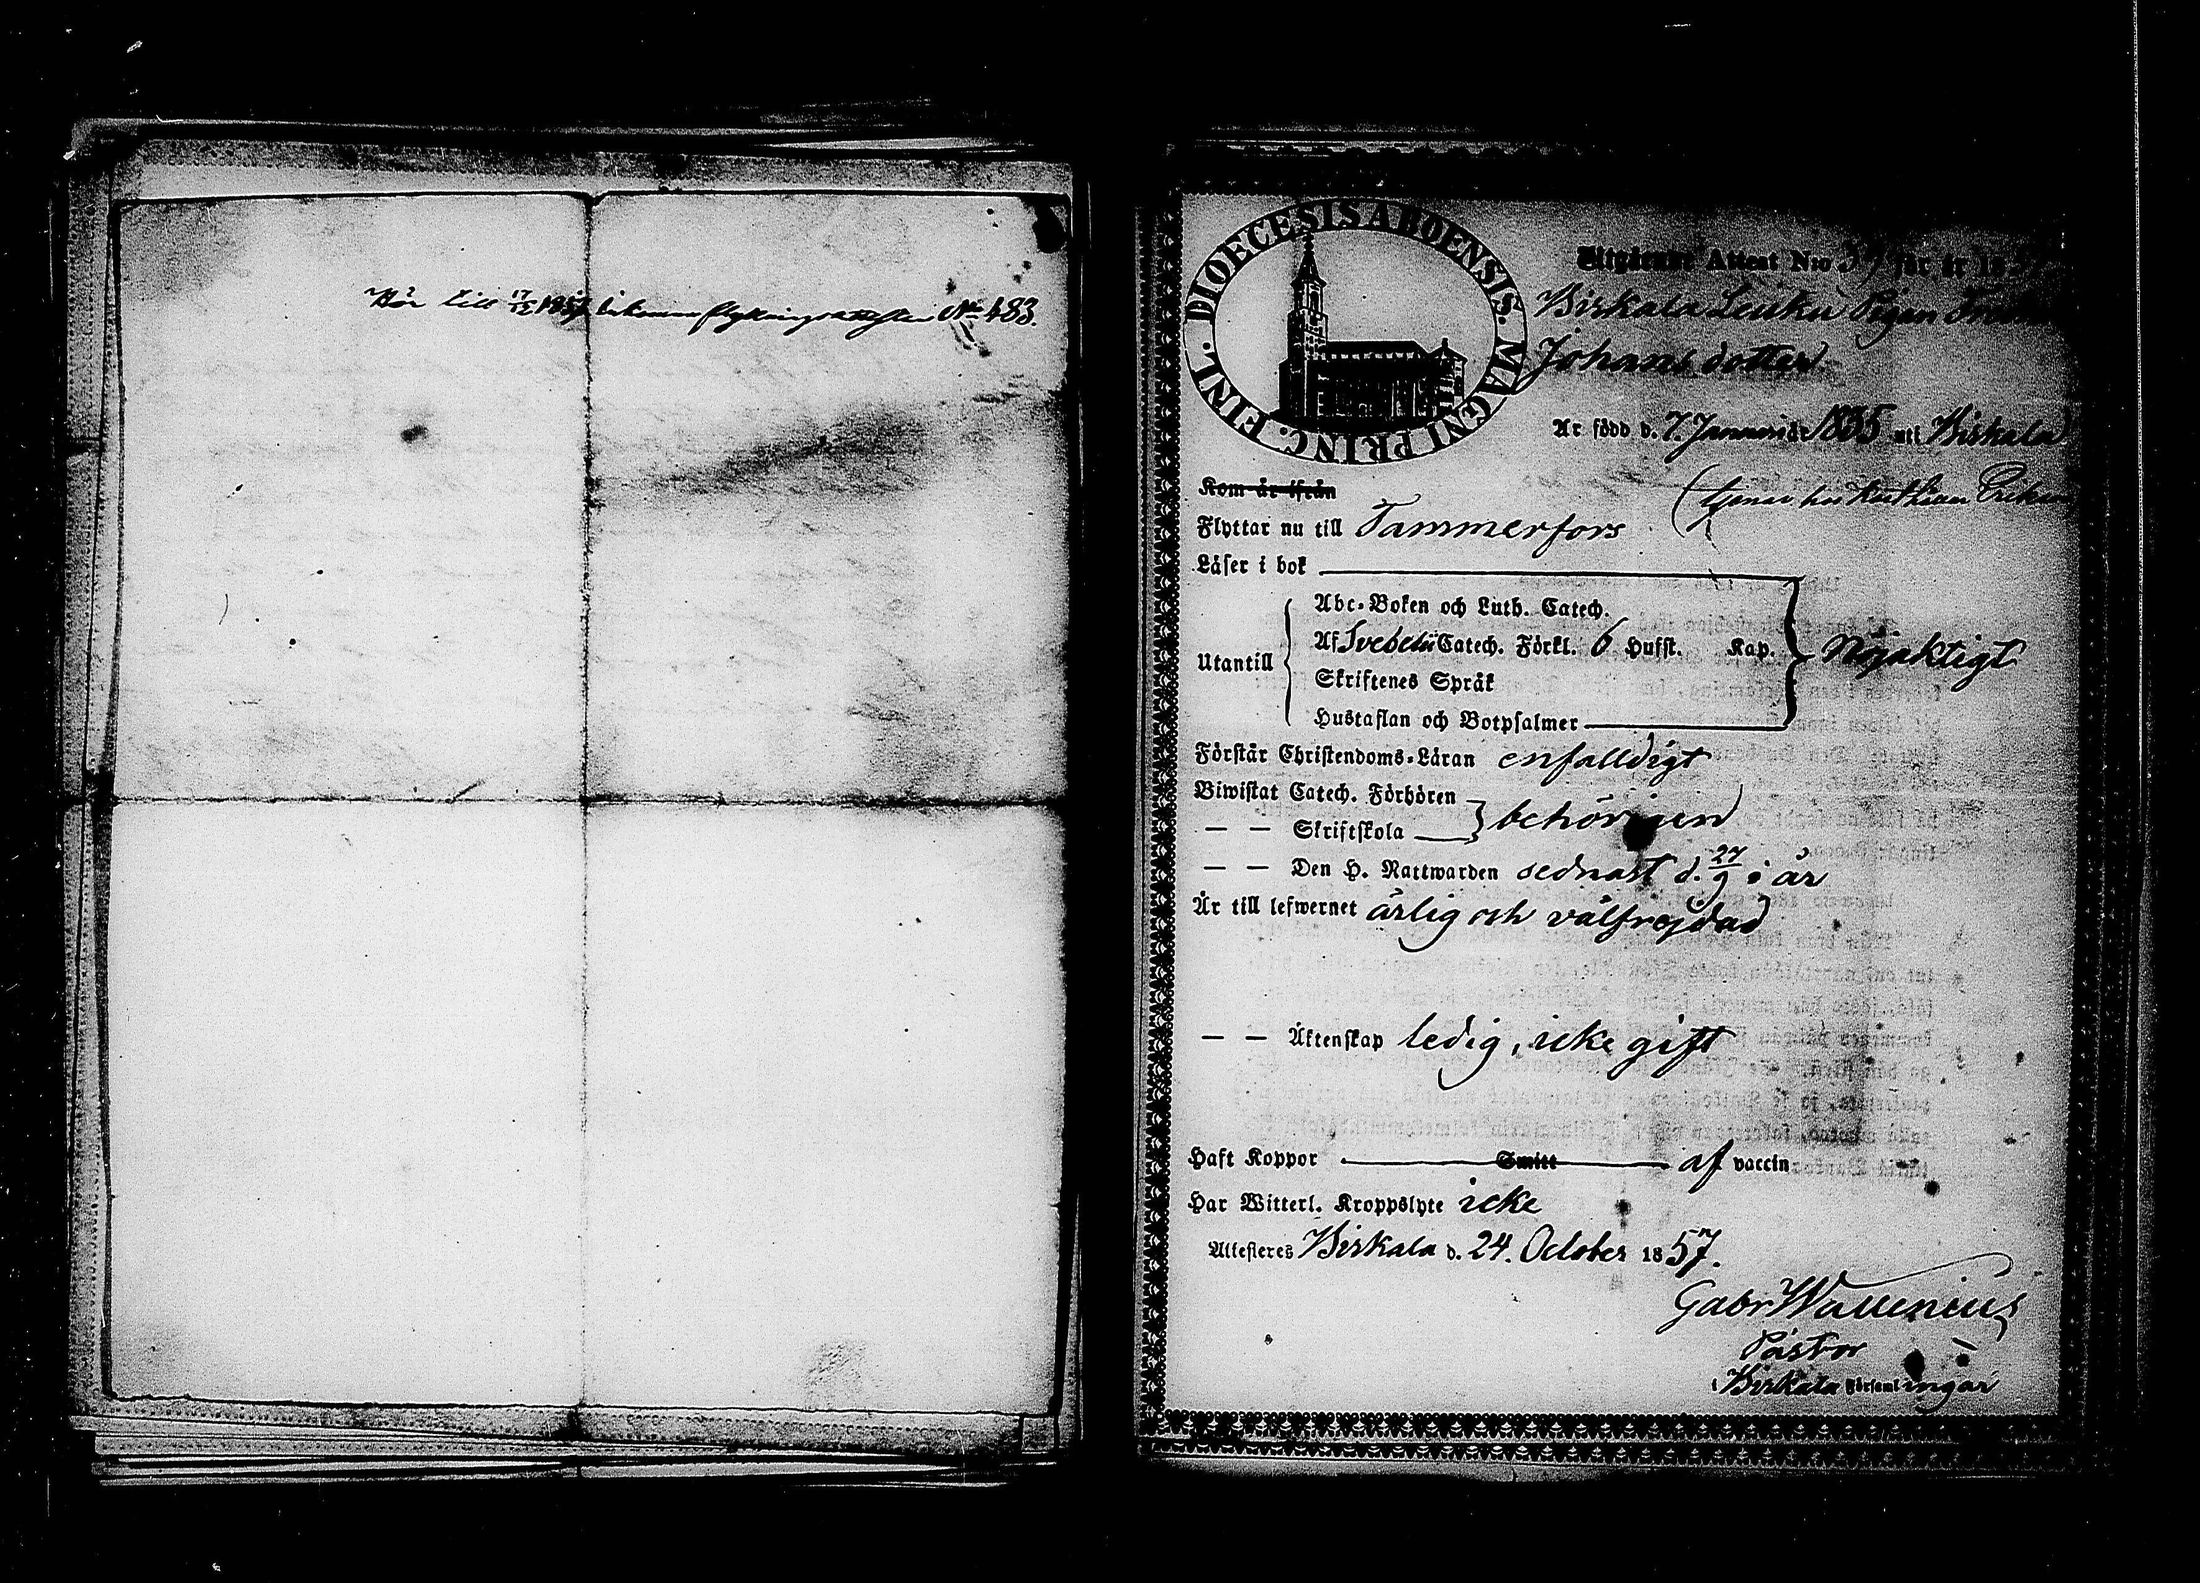 Hör till 17/12 1857 inkomne flyttningsattesten No 483.
DIOECESIS ABOENSIS. MAGNI PRINC. FINL.
Utgående Attest N:o för år 18
Birkala Leuku Pigan
Johansdotter
Är född d. 7. Januari år 1835 uti Birkala
Kom år ifrån
(tjenar hos
Flyttar nu till Tammerfors
Läser i bok
Abc-Boken och Luth. Catech.
Af Svebelii Catech. Förkl. 6 Hufst. Kap.
Utantill
nöjaktigt
Skriftenes Språk
Hustaflan och Botpsalmer
Förstår Christendoms-Läran enfalldigt
Biwistat Catech. Förhören
behörigen
— — Skriftskola
— — Den H. Nattwarden sednast d. 27/9 i år
Är till lefwernet ärlig och välfrejdad
— — Äktenskap ledig, icke gift
Haft Koppor Smitt af vaccin
Har Witterl. Kroppslyte icke
Attesteres Birkala d. 24. October 1857.
Gabr Wallenius
Pastor
i Birkala Församl ingar